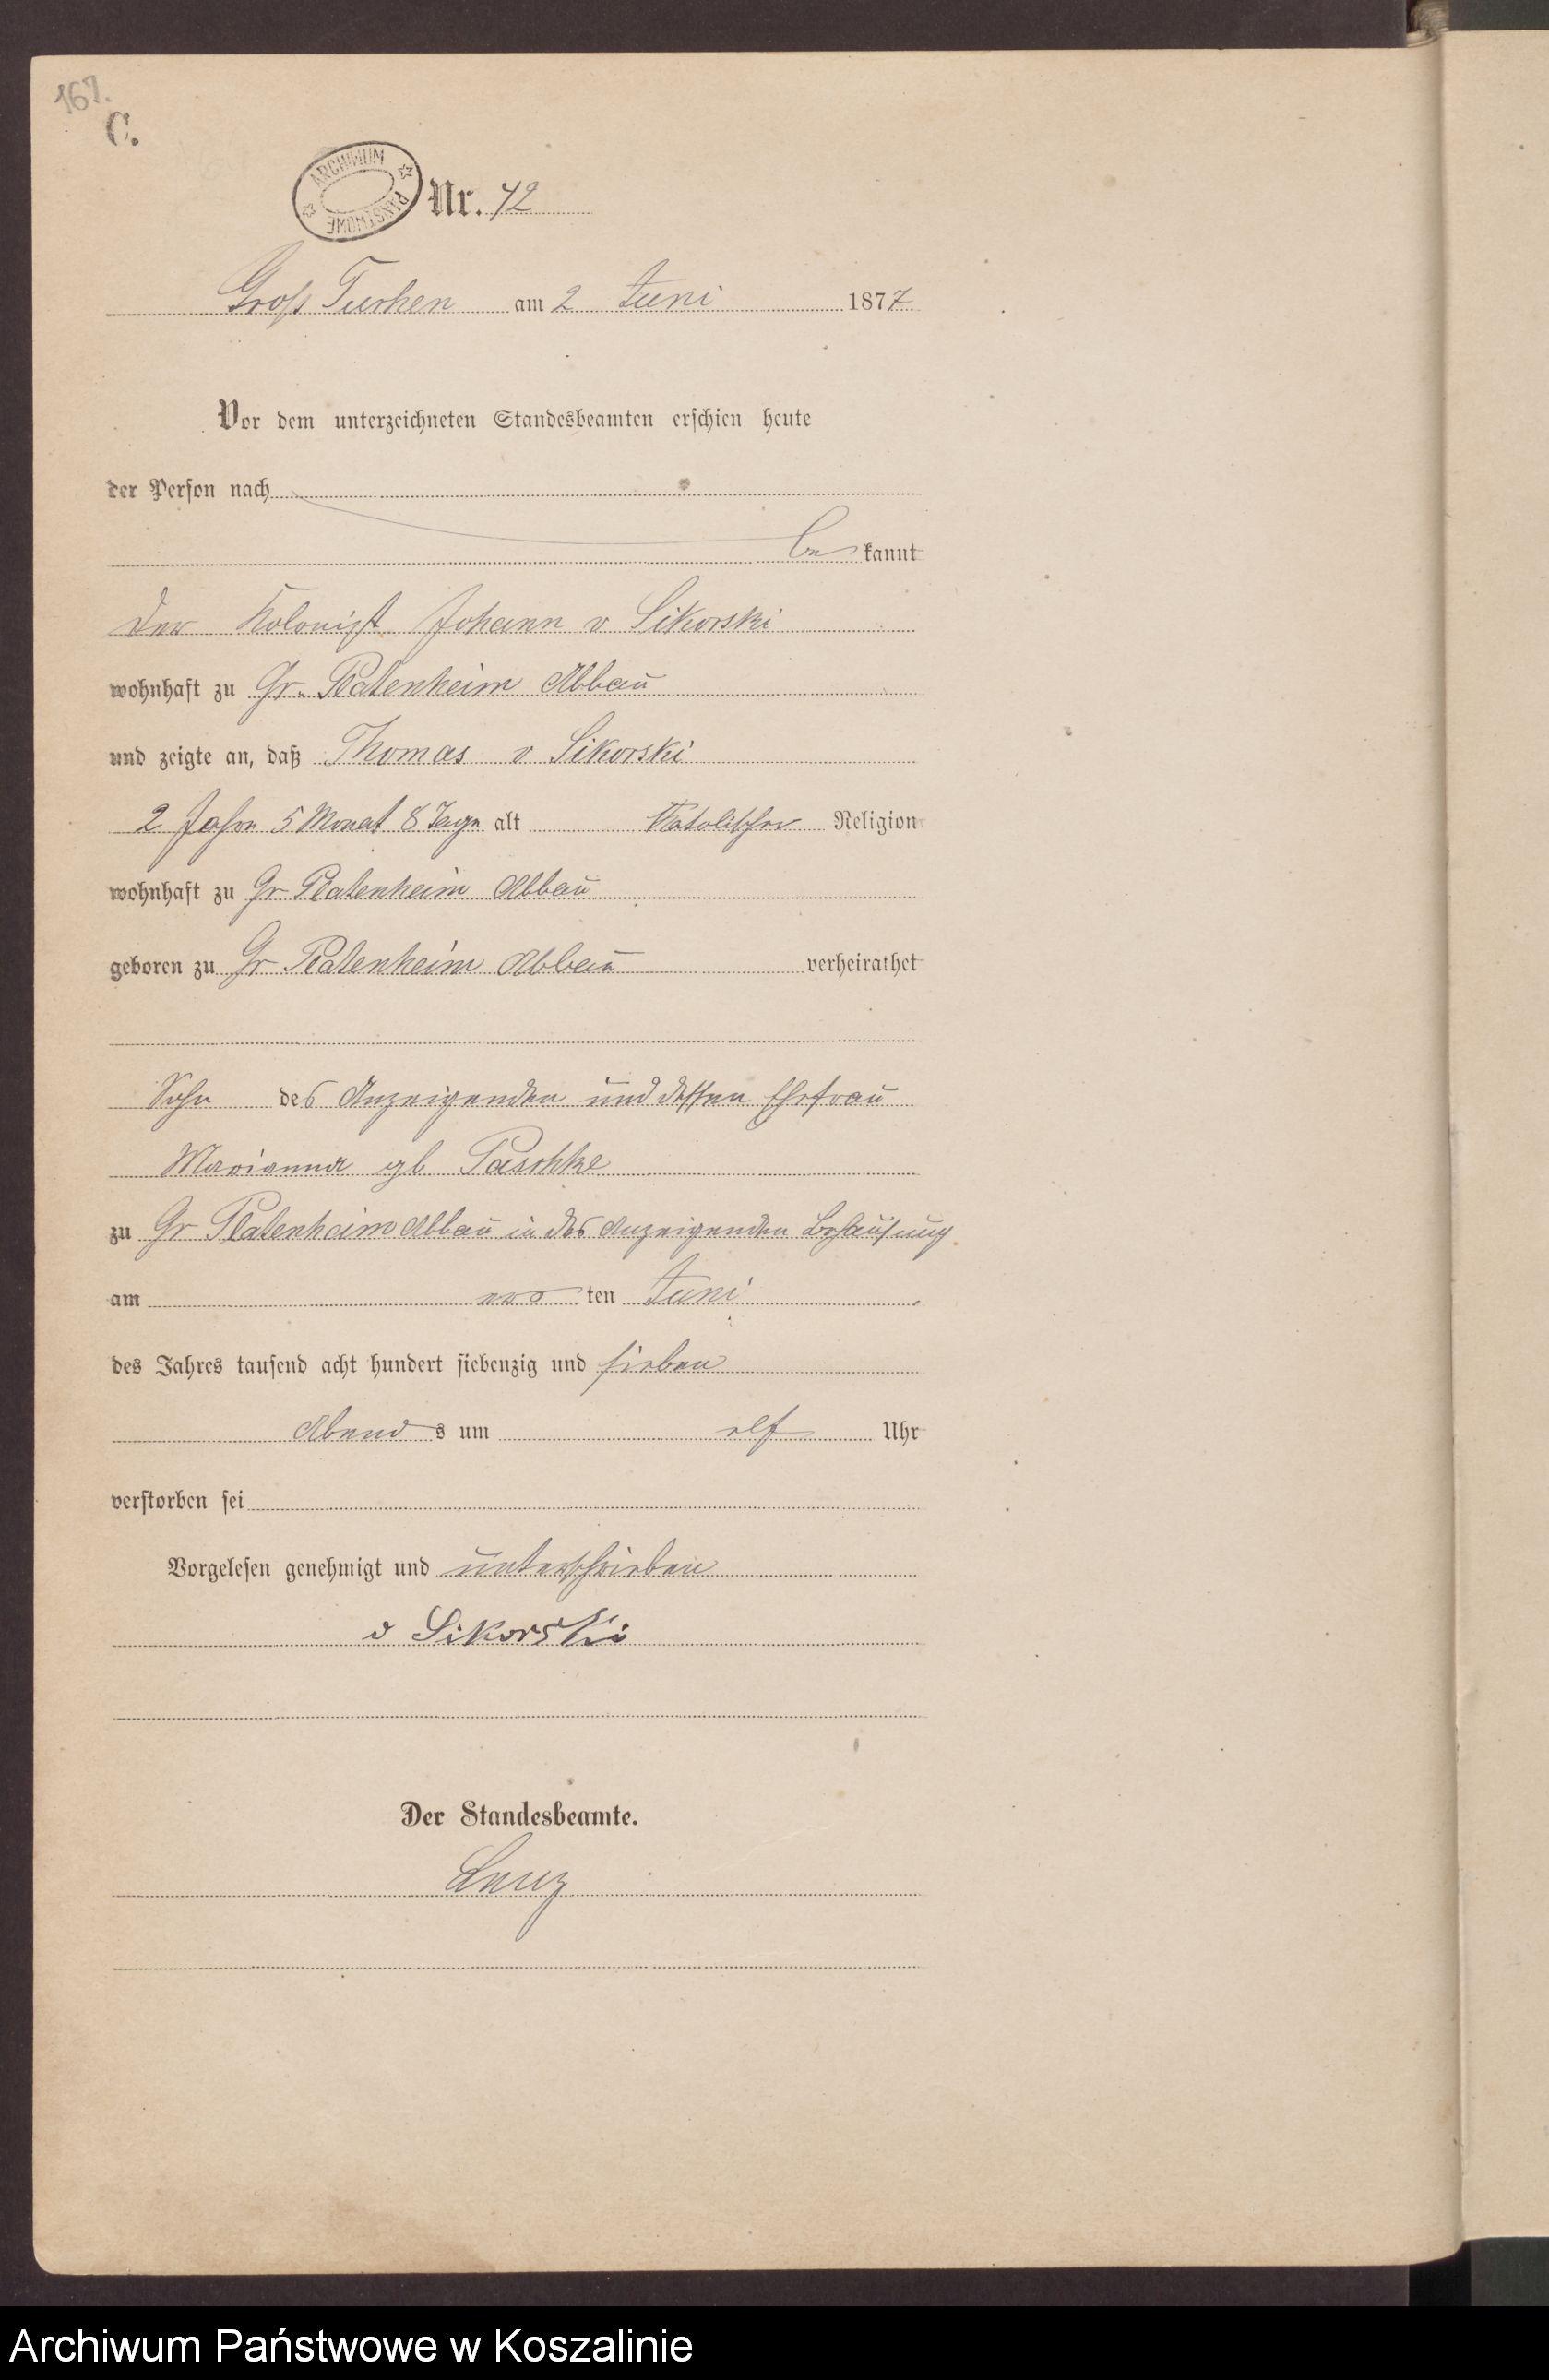 167.
C.
ARCHIWUM PAŃSTWOWE
Nr. 42
Groß Tuchen am 2 Juni 1877
Vor dem unterzeichneten Standesbeamten erschien heute
der Person nach
be kannt
der Kolonist Johann v Sikorski
wohnhaft zu Gr. Platenheim Abbau
und zeigte an, daß Thomas v Sikorski
2 Jahre 5 Monat 8 Tage alt Katolischer Religion
wohnhaft zu Gr Platenheim Abbau
geboren zu Gr Platenheim Abbau verheirathet
Sohn des Anzeigenden und dessen Ehefrau
Marianna gb Paschke
zu Gr Platenheim Abbau in des Anzeigenden Behausung
am ten Juni
des Jahres tausend acht hundert siebenzig und sieben
Abend s um elf Uhr
verstorben sei
Vorgelesen genehmigt und unterschrieben
v Sikorski
Der Standesbeamte.
Archiwum Państwowe w Koszalinie